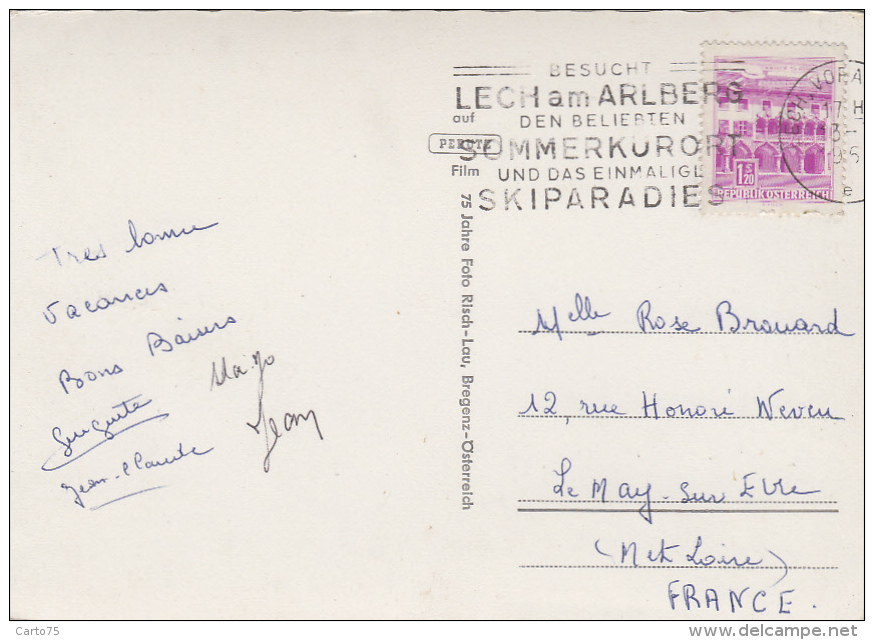 BESUCHT
LECH am ARLBERG
DEN BELIEBTEN
SOMMERKURORT
UND DAS EINMALIGE
SKIPARADIES
1 S 20
REPUBLIK ÖSTERREICH
17-H
13-
195
e
auf
PERUTZ
Film
75 Jahre Foto Risch-Lau, Bregenz-Österreich
Tres bonne
Vacances
Bons Baisers
Jean
Jean-Claude
Melle Rose Brouard
12, rue Honoré Neveu
Le May-sur Evre
(M et Loire)
FRANCE.
Carto75
www.delcampe.net